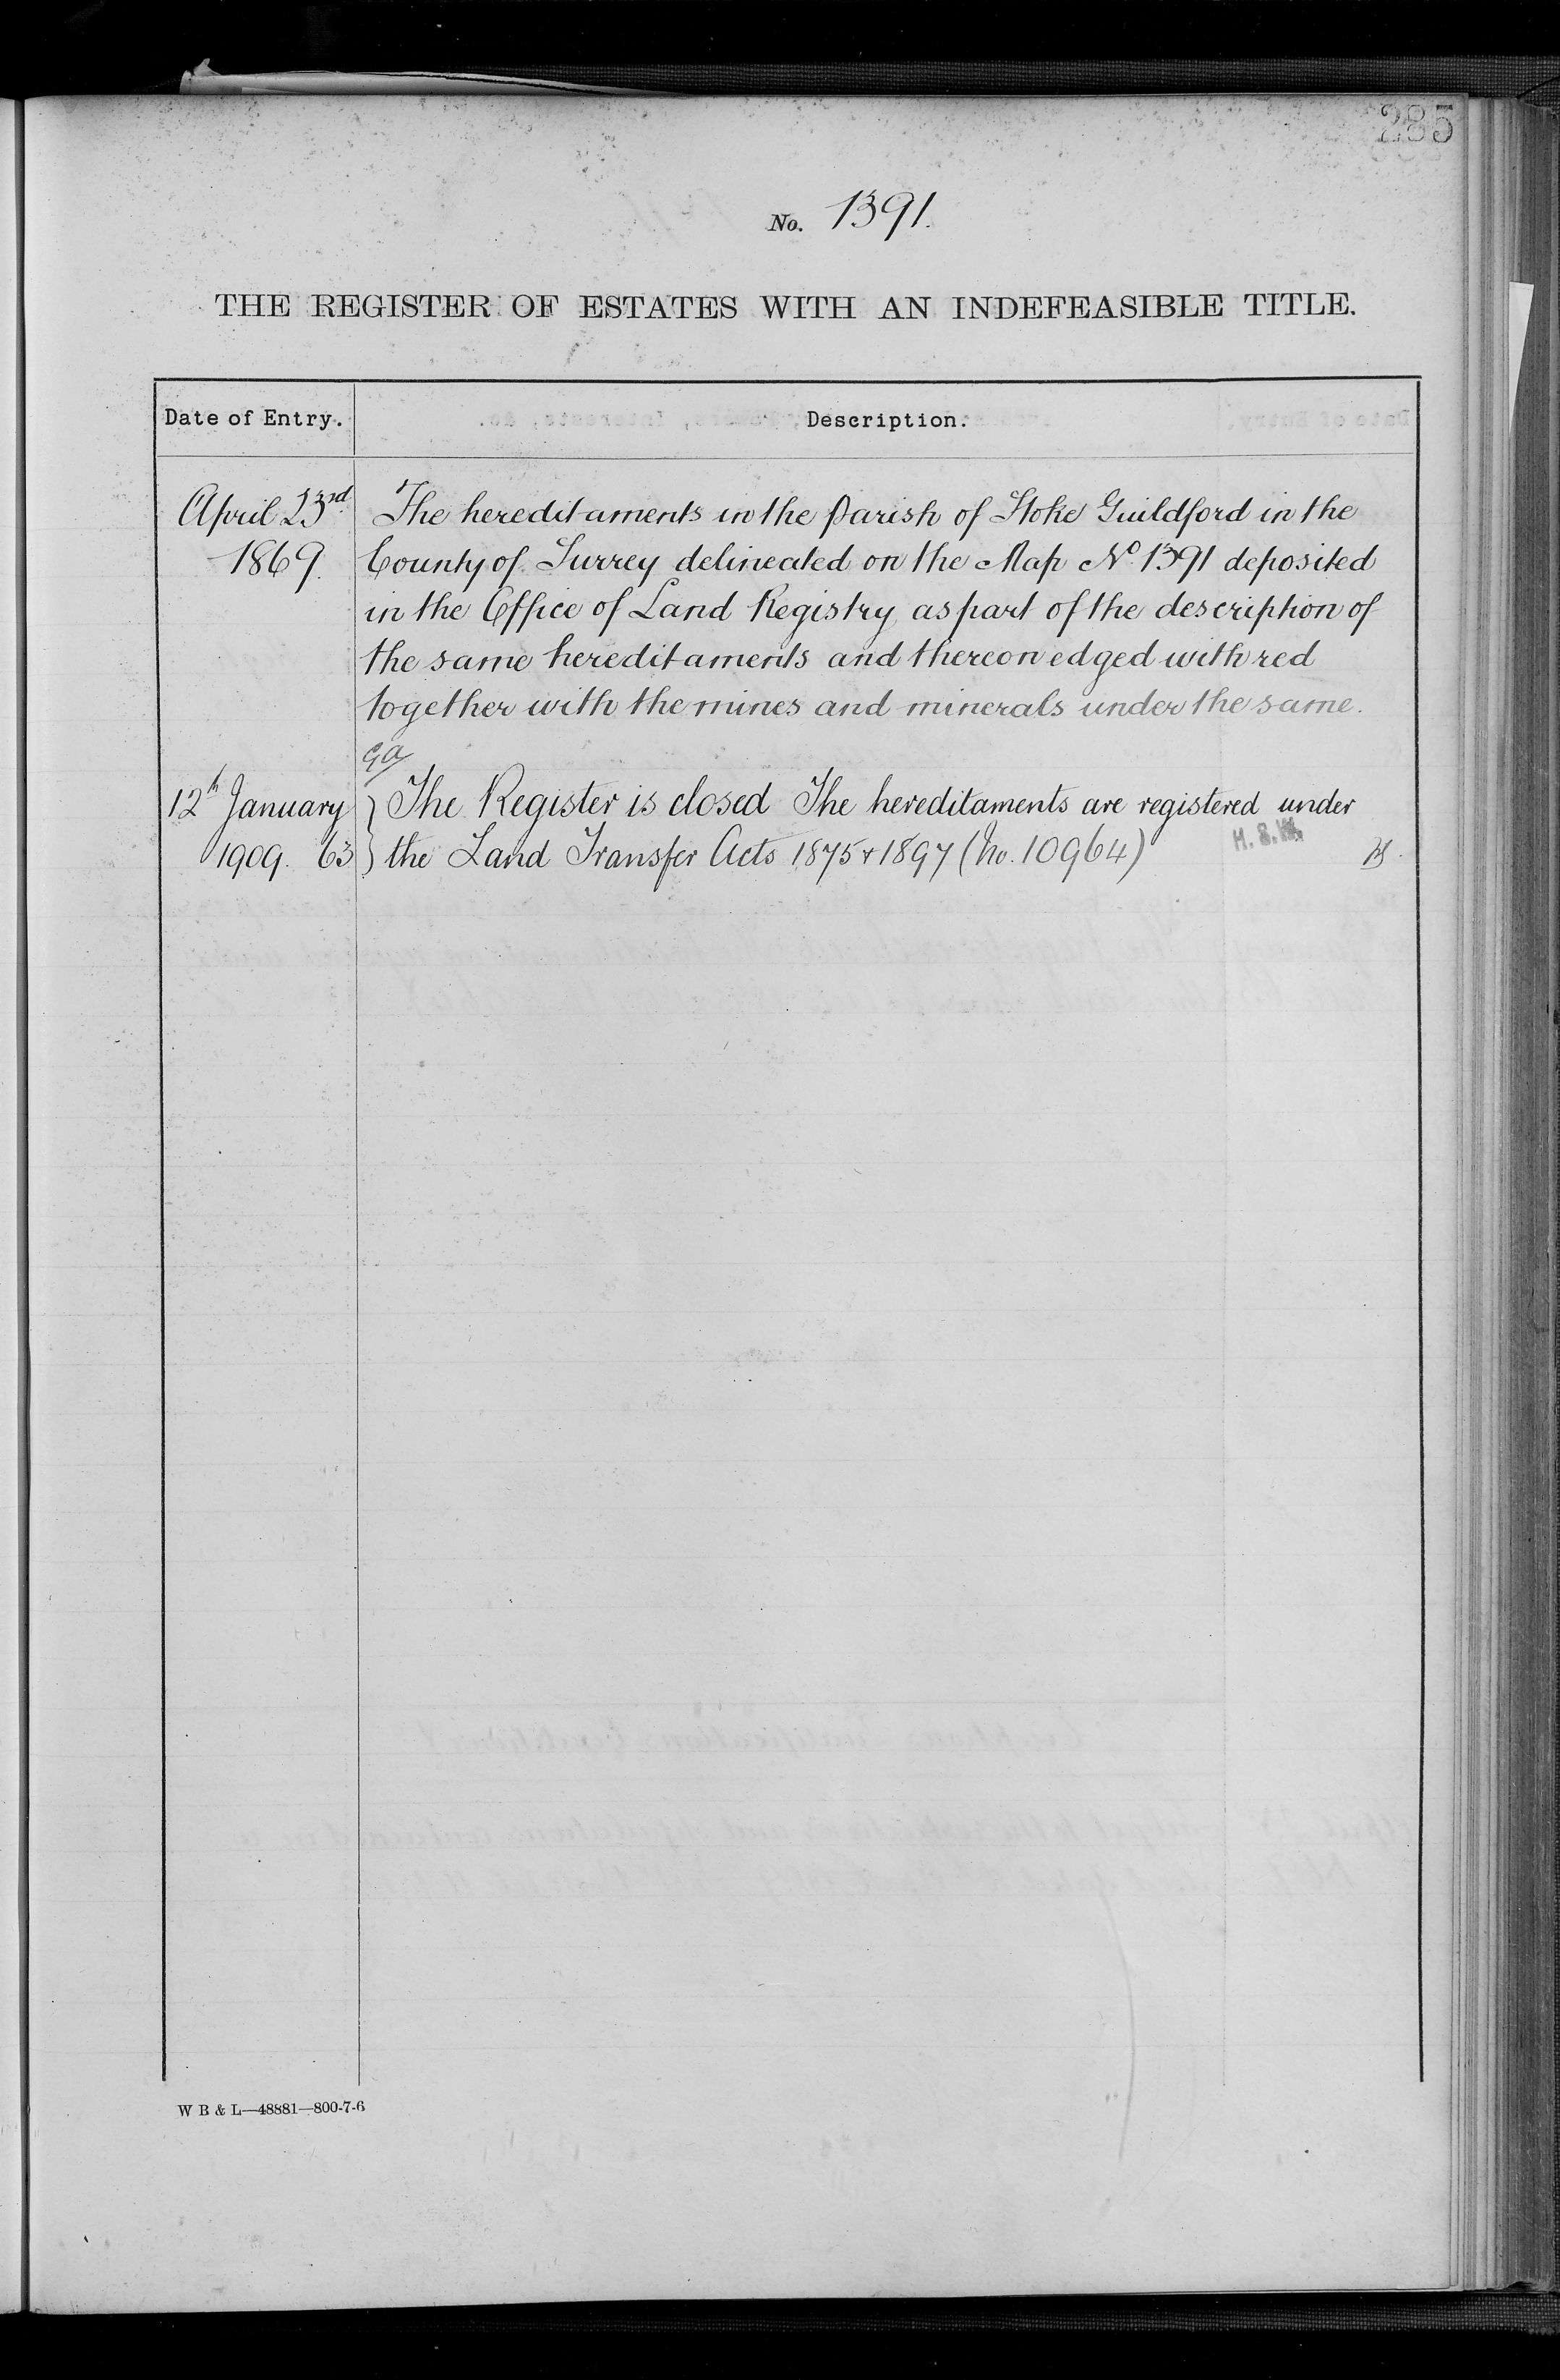 285
No. 1391.
THE REGISTER OF ESTATES WITH AN INDEFEASIBLE TITLE.
Date of Entry. Description.
April 23rd The hereditaments in the Parish of Stoke Guildford in the
1869. County of Surrey delineated on the Map No. 1391 deposited
in the Office of Land Registry as part of the description of
the same hereditaments and thereon edged with red
together with the mines and minerals under the same.
12th January The Register is closed The hereditaments are registered under
1909. 63 the Land Transfer Acts 1875 & 1897 (No. 10964)
W B & L—48881—800-7-6